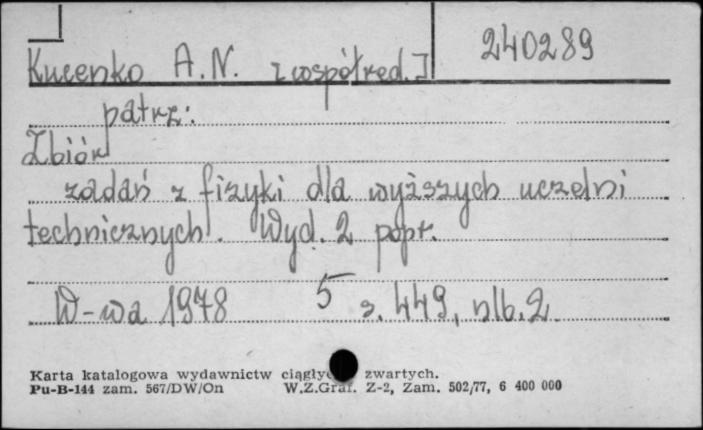 240289
Kucenko A.N. [współred.]
patrz:
Zbiór
zadań z fizyki dla wyższych uczelni
technicznych. Wyd. 2 popr.
W-wa 1978 5 s. 449, nlb. 2
Karta katalogowa wydawnictw zwartych.
Pu-B-144 zam. 567/DW/On W.Z.Graf. Z-2, Zam. 502/77, 6 400 000